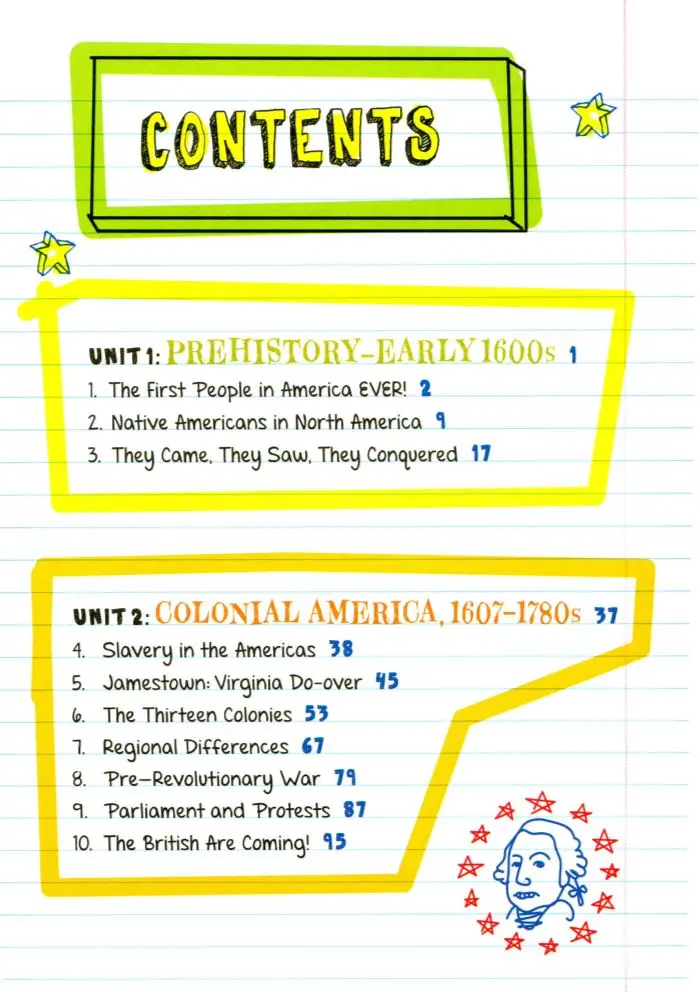 CONTENTS
UNIT 1: PREHISTORY–EARLY 1600s 1
1. The First People in America EVER! 2
2. Native Americans in North America 9
3. They Came, They Saw, They Conquered 17
UNIT 2: COLONIAL AMERICA, 1607–1780s 37
4. Slavery in the Americas 38
5. Jamestown: Virginia Do-over 45
6. The Thirteen Colonies 53
7. Regional Differences 67
8. Pre-Revolutionary War 79
9. Parliament and Protests 87
10. The British Are Coming! 95